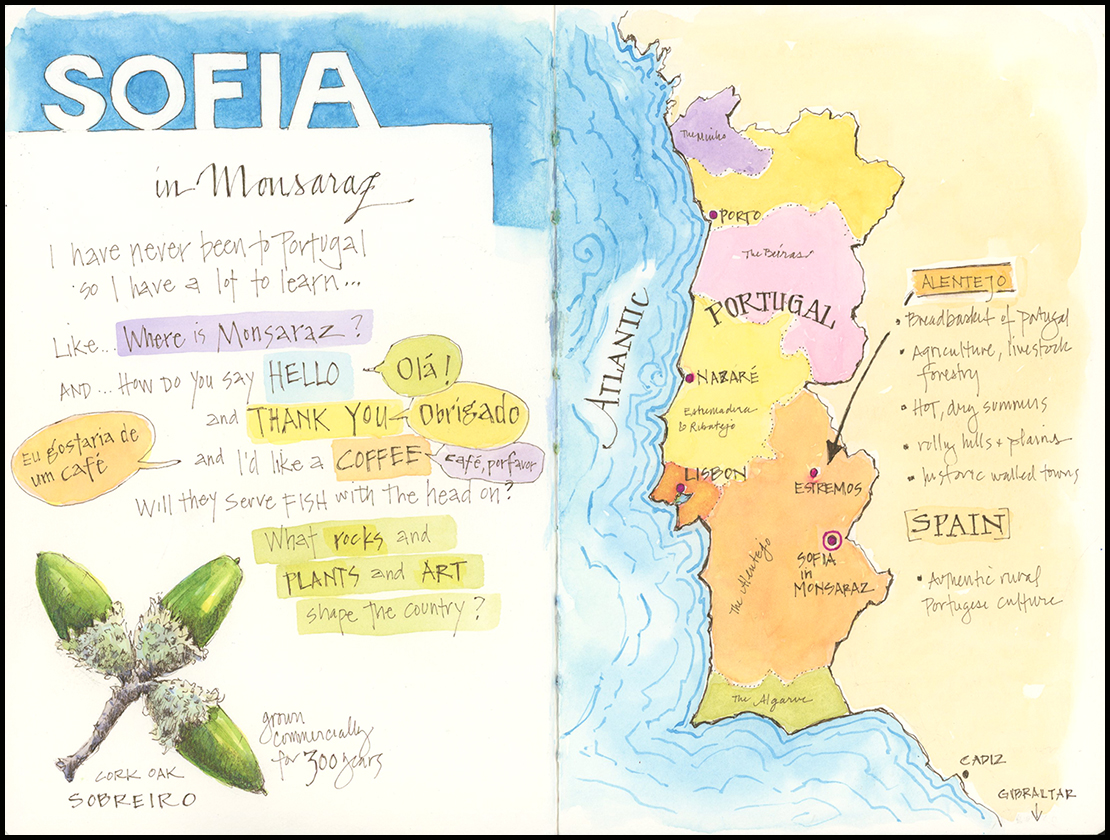 SOFIA
in Monsaraz
I have never been to Portugal
so I have a lot to learn...
Like... Where is Monsaraz?
AND... HOW DO YOU SAY HELLO
Olá!
and THANK YOU
Obrigado
Eu gostaria de
um café
and I'd like a COFFEE
café, por favor
Will they serve FISH with the head on?
What rocks and
PLANTS and ART
shape the country?
grown
commercially
for 300 years
CORK OAK
SOBREIRO
ATLANTIC
The Minho
PORTO
The Beiras
PORTUGAL
NAZARÉ
Estremadura
& Ribatejo
LISBON
ESTREMOS
The Alentejo
SOFIA
in
MONSARAZ
The Algarve
ALENTEJO
• Breadbasket of Portugal
• Agriculture, livestock
forestry
• Hot, dry summers
• rolly hills + plains
• historic walled towns
SPAIN
• Authentic rural
Portugese culture
CADIZ
GIBRALTAR